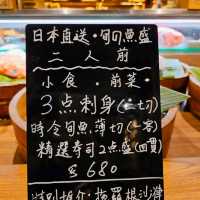 日本直送・旬の魚盛
二人前
小食・前菜・
3点刺身(二切)
時令旬魚薄切(一客)
精選寿司2点盛(四貫)
680
特別推介・